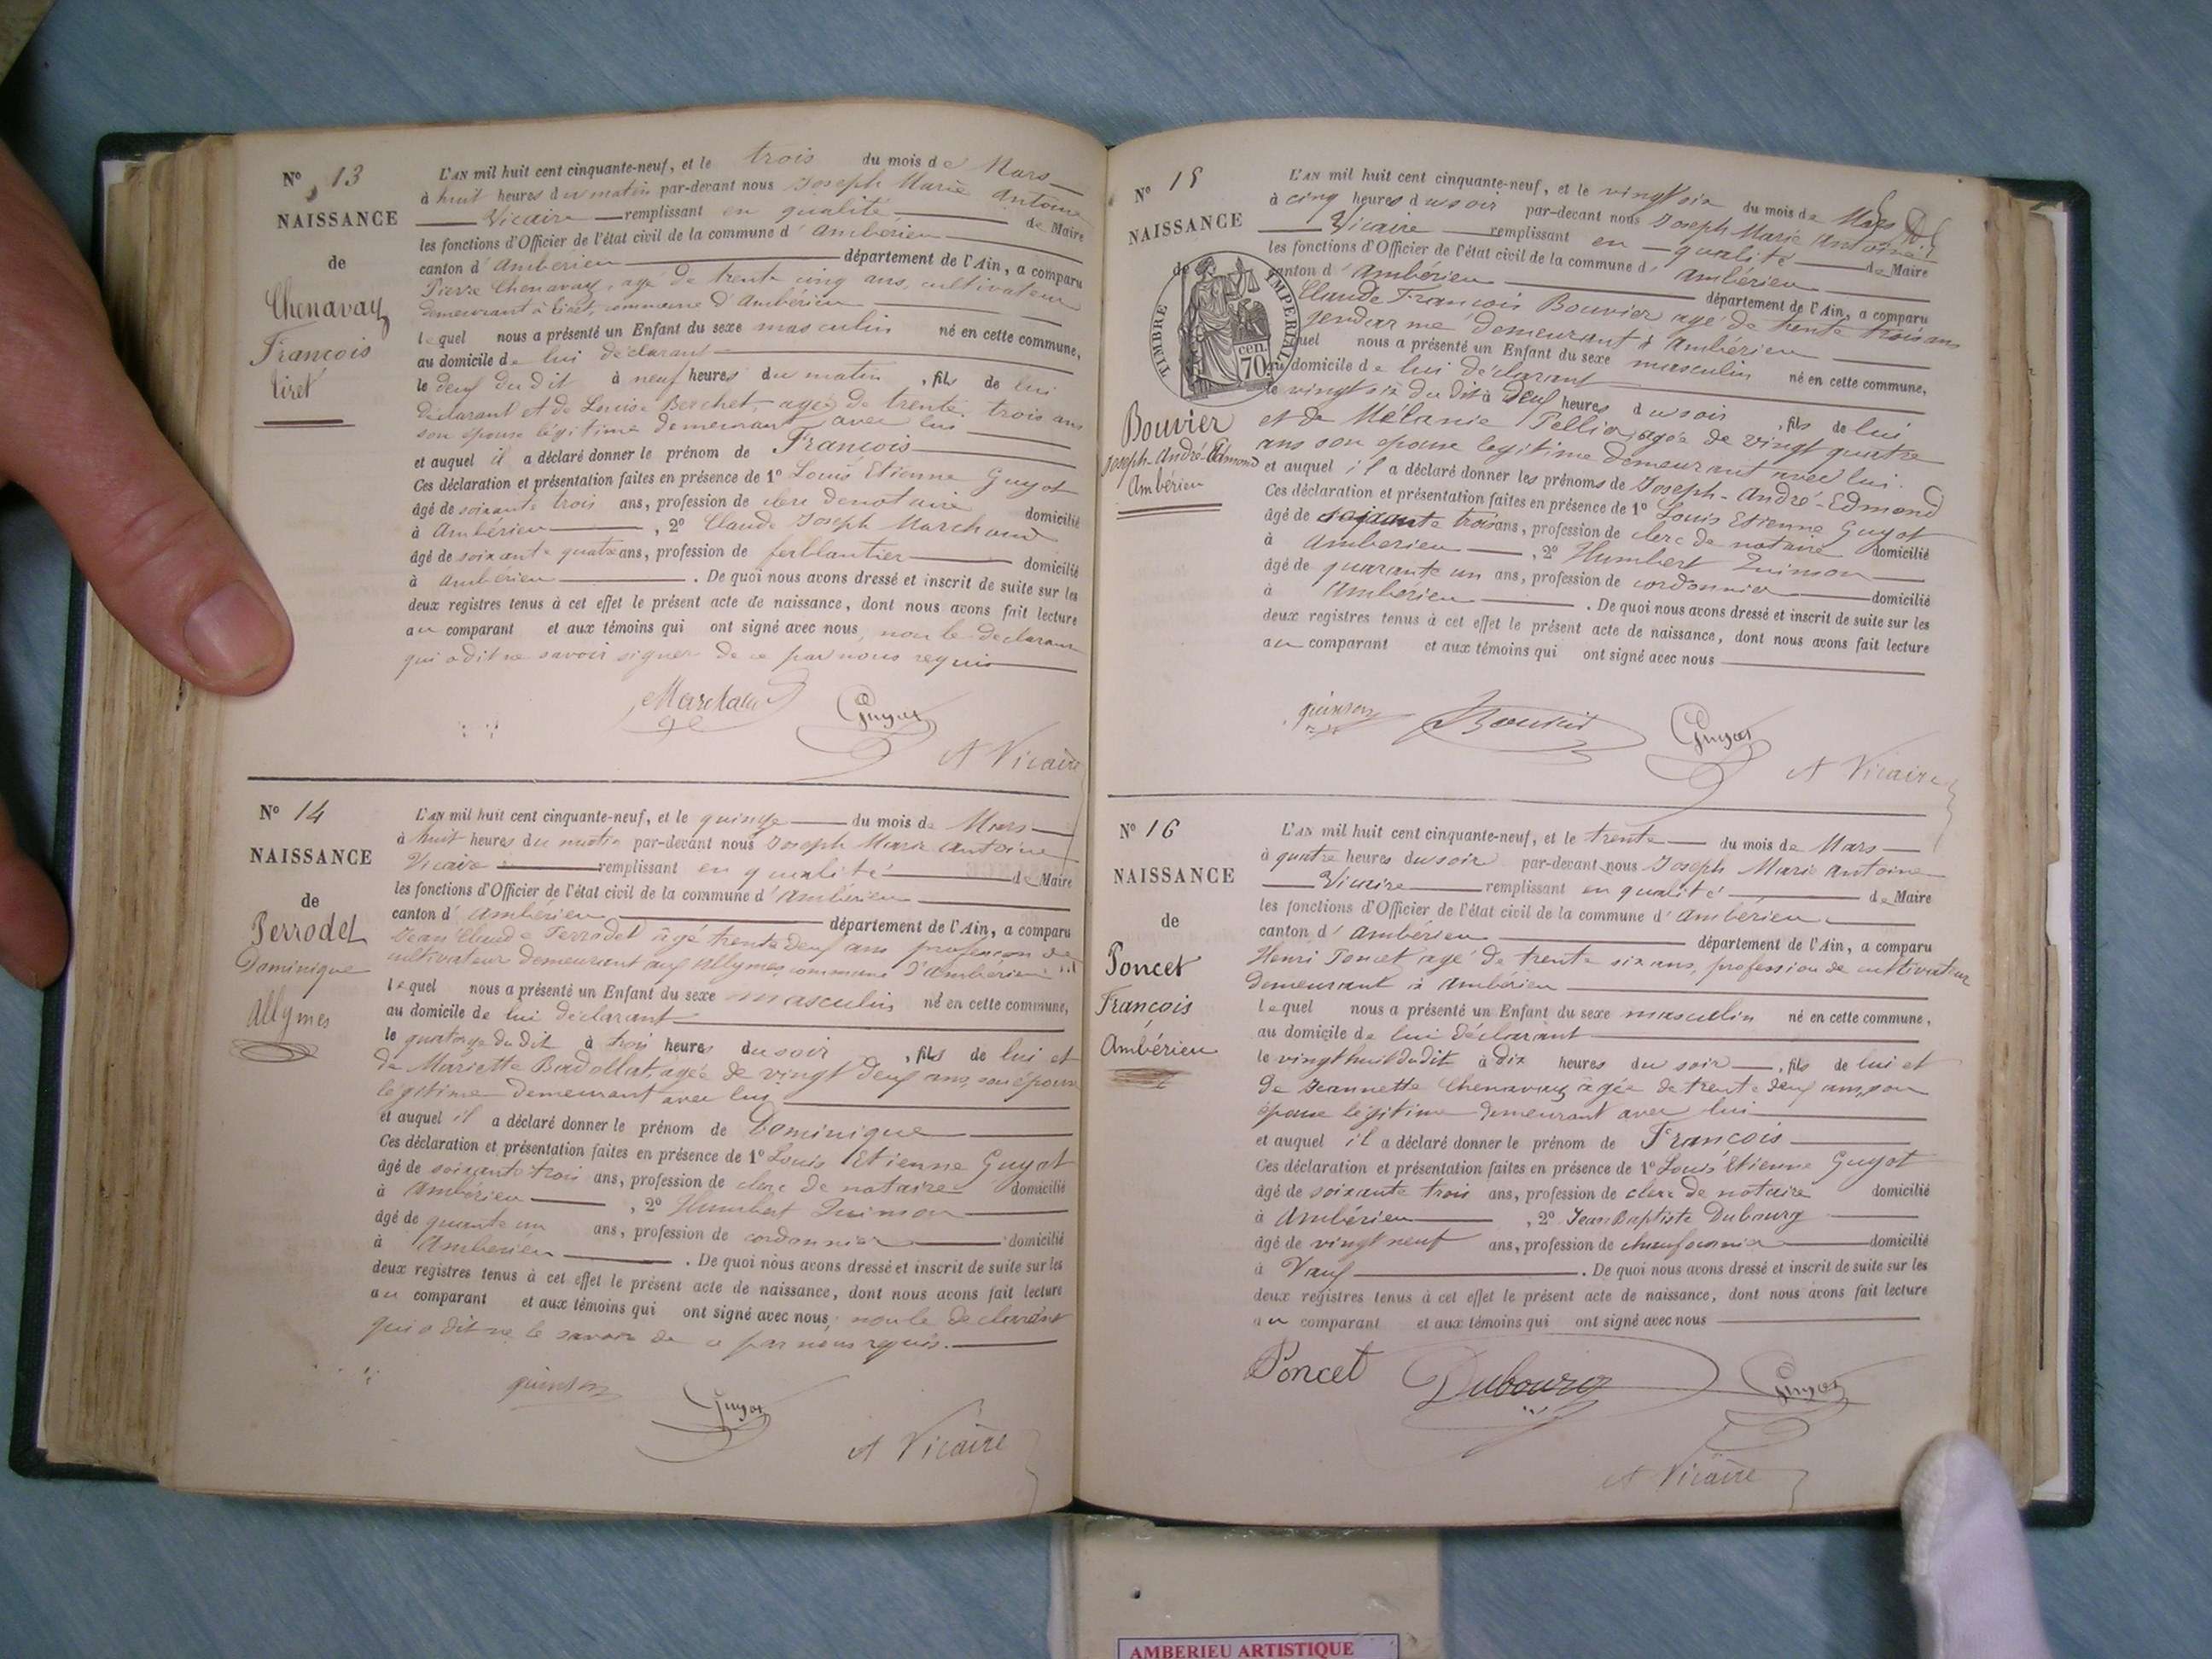 N° 13
NAISSANCE
de
Chenavay
François
tiret
L'AN mil huit cent cinquante-neuf, et le trois du mois de Mars
à huit heures du matin par-devant nous Joseph Marie Antoine
Vicaire remplissant en qualité de Maire
les fonctions d'Officier de l'état civil de la commune d'Ambérieu
canton d'Ambérieu département de l'Ain, a comparu
Pierre Chenavay, agé de trente cinq ans, cultivateur
demeurant à tiret, commune d'Ambérieu
lequel nous a présenté un Enfant du sexe masculin né en cette commune,
au domicile de lui déclarant
le deux du dit à neuf heures du matin, fils de lui
déclarant et de Louise Berchet, agée de trente trois ans
son épouse légitime demeurant avec lui
et auquel il a déclaré donner le prénom de François
Ces déclaration et présentation faites en présence de 1° Louis Etienne Guyot
âgé de soixante trois ans, profession de clerc de notaire domicilié
à Ambérieu, 2° Claude Joseph Marchand
âgé de soixante quatre ans, profession de ferblantier domicilié
à Ambérieu. De quoi nous avons dressé et inscrit de suite sur les
deux registres tenus à cet effet le présent acte de naissance, dont nous avons fait lecture
au comparant et aux témoins qui ont signé avec nous, non le déclarant
qui a dit ne savoir signer de ce par nous requis
Marchand Guyot
A Vicaire
N° 14
NAISSANCE
de
Perrodet
Dominique
Allymes
L'AN mil huit cent cinquante-neuf, et le quinze du mois de Mars
à huit heures du matin par-devant nous Joseph Marie Antoine
Vicaire remplissant en qualité de Maire
les fonctions d'Officier de l'état civil de la commune d'Ambérieu
canton d'Ambérieu département de l'Ain, a comparu
Jean Claude Perrodet âgé trente deux ans profession de
cultivateur demeurant aux Allymes, commune d'Ambérieu
lequel nous a présenté un Enfant du sexe masculin né en cette commune,
au domicile de lui déclarant
le quatorze du dit à trois heures du soir, fils de lui et
de Mariette Badollat, agée de vingt deux ans, son épouse
légitime demeurant avec lui
et auquel il a déclaré donner le prénom de Dominique
Ces déclaration et présentation faites en présence de 1° Louis Etienne Guyot
âgé de soixante trois ans, profession de clerc de notaire domicilié
à Ambérieu, 2° Humbert Quinson
âgé de quante un ans, profession de cordonnier domicilié
à Ambérieu. De quoi nous avons dressé et inscrit de suite sur les
deux registres tenus à cet effet le présent acte de naissance, dont nous avons fait lecture
au comparant et aux témoins qui ont signé avec nous, non le déclarant
qui a dit ne le savoir de ce par nous requis.
quinson Guyot
A Vicaire
N° 15
NAISSANCE
de
TIMBRE IMPERIAL
70 cen.
Bouvier
Joseph-André-Edmond
Ambérieu
L'AN mil huit cent cinquante-neuf, et le vingt six du mois de Mars
à cinq heures du soir par-devant nous Joseph Marie Antoine
Vicaire remplissant en qualité de Maire
les fonctions d'Officier de l'état civil de la commune d'Ambérieu
canton d'Ambérieu département de l'Ain, a comparu
Claude François Bouvier agé de trente trois ans
gendarme demeurant à Ambérieu
quel nous a présenté un Enfant du sexe masculin né en cette commune,
au domicile de lui déclarant
le vingt six du dit à deux heures du soir, fils de lui
et de Mélanie Pellio, agée de vingt quatre
ans son épouse légitime demeurant avec lui
et auquel il a déclaré donner les prénoms de Joseph-André-Edmond
Ces déclaration et présentation faites en présence de 1° Louis Etienne Guyot
âgé de soixante trois ans, profession de clerc de notaire domicilié
à Ambérieu, 2° Humbert Quinson
âgé de quarante un ans, profession de cordonnier domicilié
à Ambérieu. De quoi nous avons dressé et inscrit de suite sur les
deux registres tenus à cet effet le présent acte de naissance, dont nous avons fait lecture
au comparant et aux témoins qui ont signé avec nous
quinson Bouvier Guyot
A Vicaire
N° 16
NAISSANCE
de
Poncet
François
Ambérieu
L'AN mil huit cent cinquante-neuf, et le trente du mois de Mars
à quatre heures du soir par-devant nous Joseph Marie Antoine
Vicaire remplissant en qualité de Maire
les fonctions d'Officier de l'état civil de la commune d'Ambérieu
canton d'Ambérieu département de l'Ain, a comparu
Henri Poncet agé de trente six ans, profession de cultivateur
demeurant à Ambérieu
lequel nous a présenté un Enfant du sexe masculin né en cette commune,
au domicile de lui déclarant
le vingt huit du dit à dix heures du soir, fils de lui et
de Jeannette Chenavay agée de trente deux ans, son
épouse légitime demeurant avec lui
et auquel il a déclaré donner le prénom de François
Ces déclaration et présentation faites en présence de 1° Louis Etienne Guyot
âgé de soixante trois ans, profession de clerc de notaire domicilié
à Ambérieu, 2° Jean Baptiste Dubourg
âgé de vingt neuf ans, profession de chaufournier domicilié
à Vaux. De quoi nous avons dressé et inscrit de suite sur les
deux registres tenus à cet effet le présent acte de naissance, dont nous avons fait lecture
au comparant et aux témoins qui ont signé avec nous
Poncet Dubourg Guyot
A Vicaire
AMBERIEU ARTISTIQUE